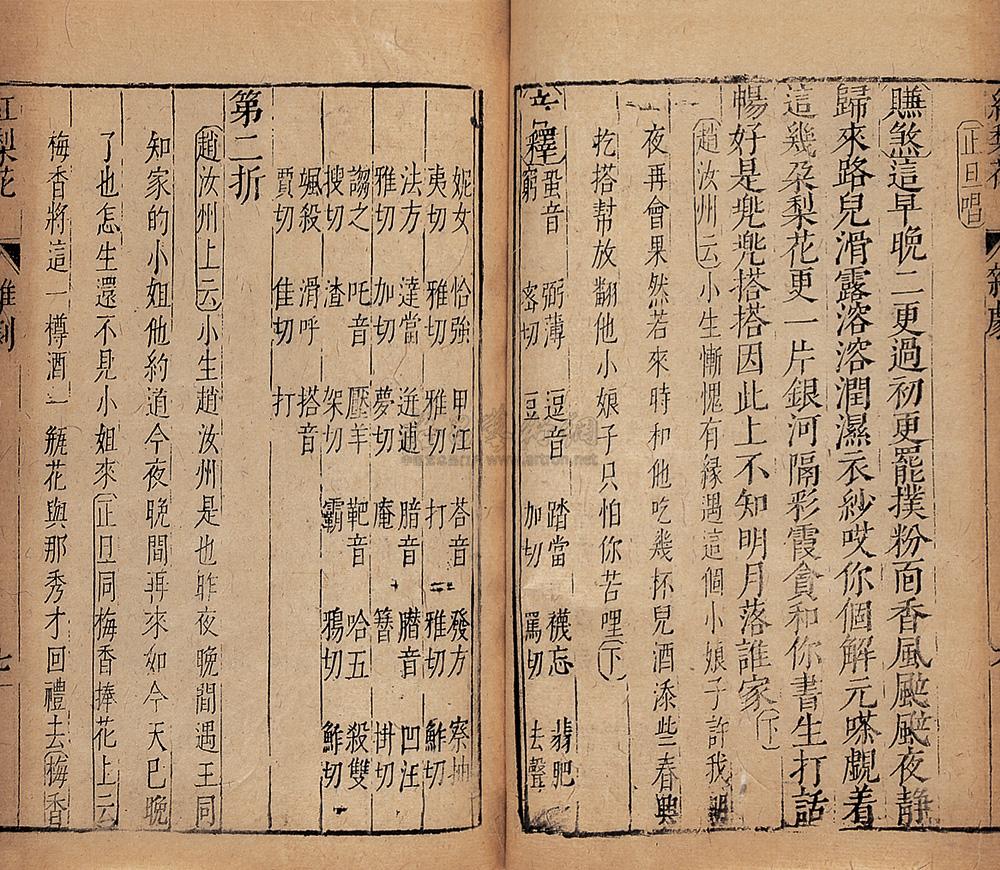 正旦唱
賺煞這早晚二更過初更罷撲粉面香風颭颭夜靜
歸來路兒滑露溶溶潤濕衣紗哎你個解元嗏覷着
這幾朶梨花更一片銀河隔彩霞貪和你書生打話
暢好是兠兠搭搭因此上不知明月落誰家下
趙汝州云小生慚愧有緣遇這個小娘子許我明
夜再會果然若來時和他吃幾杯兒酒添些春興
扢搭幫放翻他小娘子只怕你苦哩下
音釋 蛩音窮 弼薄密切 逗音豆 踏當加切 襪忘罵切 翡肥去聲
妮女夷切 恰強雅切 甲江雅切 荅音打 發方雅切 察抽鮓切
法方雅切 達當加切 迸逋夢切 腤音庵 臢音簪 凹汪卦切
謅之搜切 吒音渣 壓羊架切 靶音霸 哈五鴉切 殺雙鮓切
煞殺賈切 滑呼佳切 搭音打
第二折
趙汝州上云小生趙汝州是也昨夜晚間遇王同
知家的小姐他約道今夜晚間再來如今天巳晚
了也怎生還不見小姐來正旦同梅香捧花上云
梅香將這一樽酒一甁花與那秀才回禮去梅香
紅梨花 雜劇 七